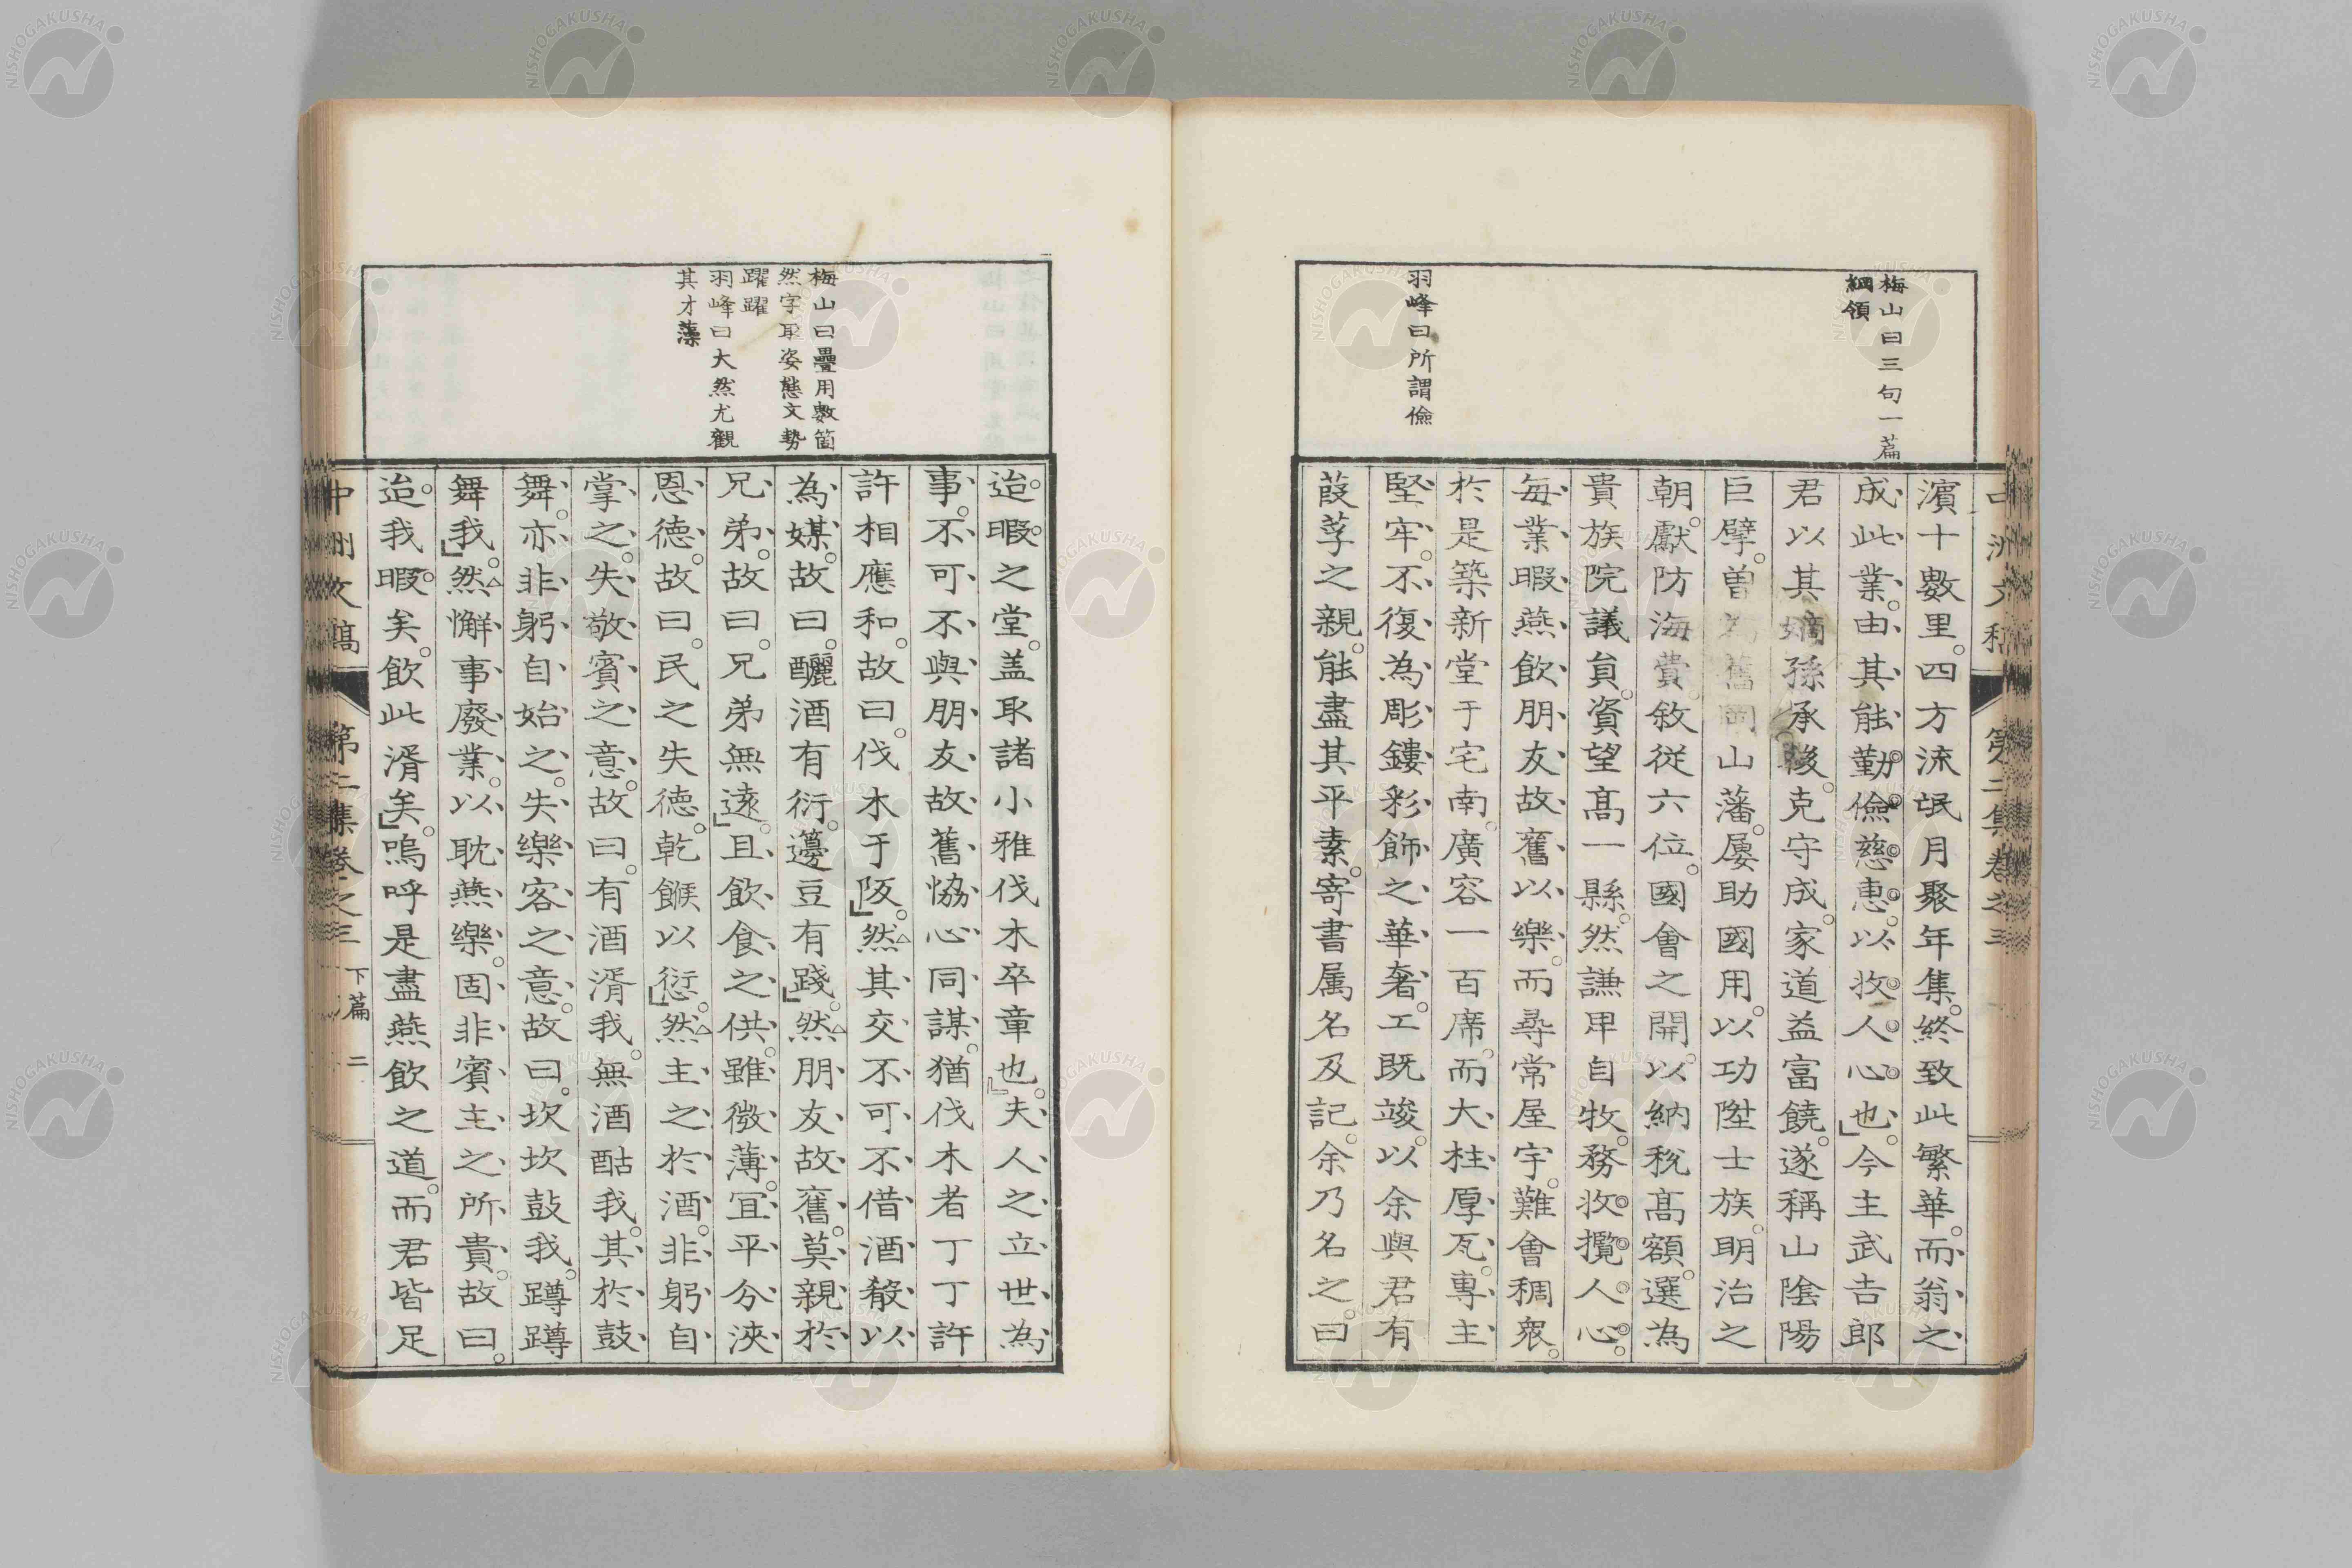 梅山曰三句一篇
綱領
羽峰曰所謂儉
中洲文稿 第二集卷之三
濱十數里。四方流氓月聚年集。終致此繁華。而翁之
成此業。由其能勤儉慈惠。以收人心也。今主武吉郎
君以其嫡孫承後。克守成。家道益富饒。遂稱山陰陽
巨擘。曽為舊岡山藩。屢助國用。以功陞士族。明治之
朝。獻防海費。敘從六位。國會之開。以納稅高額。選為
貴族院議員。資望高一縣。然謙卑自牧。務收攬人心。
每業暇燕飲朋友故舊以樂。而尋常屋宇。難會稠衆。
於是築新堂于宅南。廣容一百席。而大柱厚瓦。專主
堅牢。不復為彫鏤彩飾之華奢。工既竣。以余與君有
葭莩之親。能盡其平素。寄書属名及記。余乃名之。曰
梅山曰疊用數箇
然字取姿態文勢
躍躍
羽峰曰大然尤觀
其才藻
迨暇之堂。盖取諸小雅伐木卒章也。夫人之立世為
事。不可不與朋友故舊恊心同謀。猶伐木者丁丁許
許相應和。故曰。伐木于阪。然其交不可不借酒殽以
為媒。故曰。釃酒有衍。籩豆有踐。然朋友故舊。莫親於
兄弟。故曰。兄弟無遠。且飲食之供。雖微薄。宜平分浹
恩德。故曰。民之失德。乾餱以愆。然主之於酒。非躬自
掌之。失敬賓之意。故曰。有酒湑我。無酒酤我。其於鼓
舞。亦非躬自始之。失樂客之意。故曰。坎坎鼓我。蹲蹲
舞我。然懈事廢業。以耽燕樂。固非賓主之所貴。故曰。
迨我暇矣。飲此湑矣。嗚呼是盡燕飲之道。而君皆足
中洲文稿 第二集卷之三 下篇 二